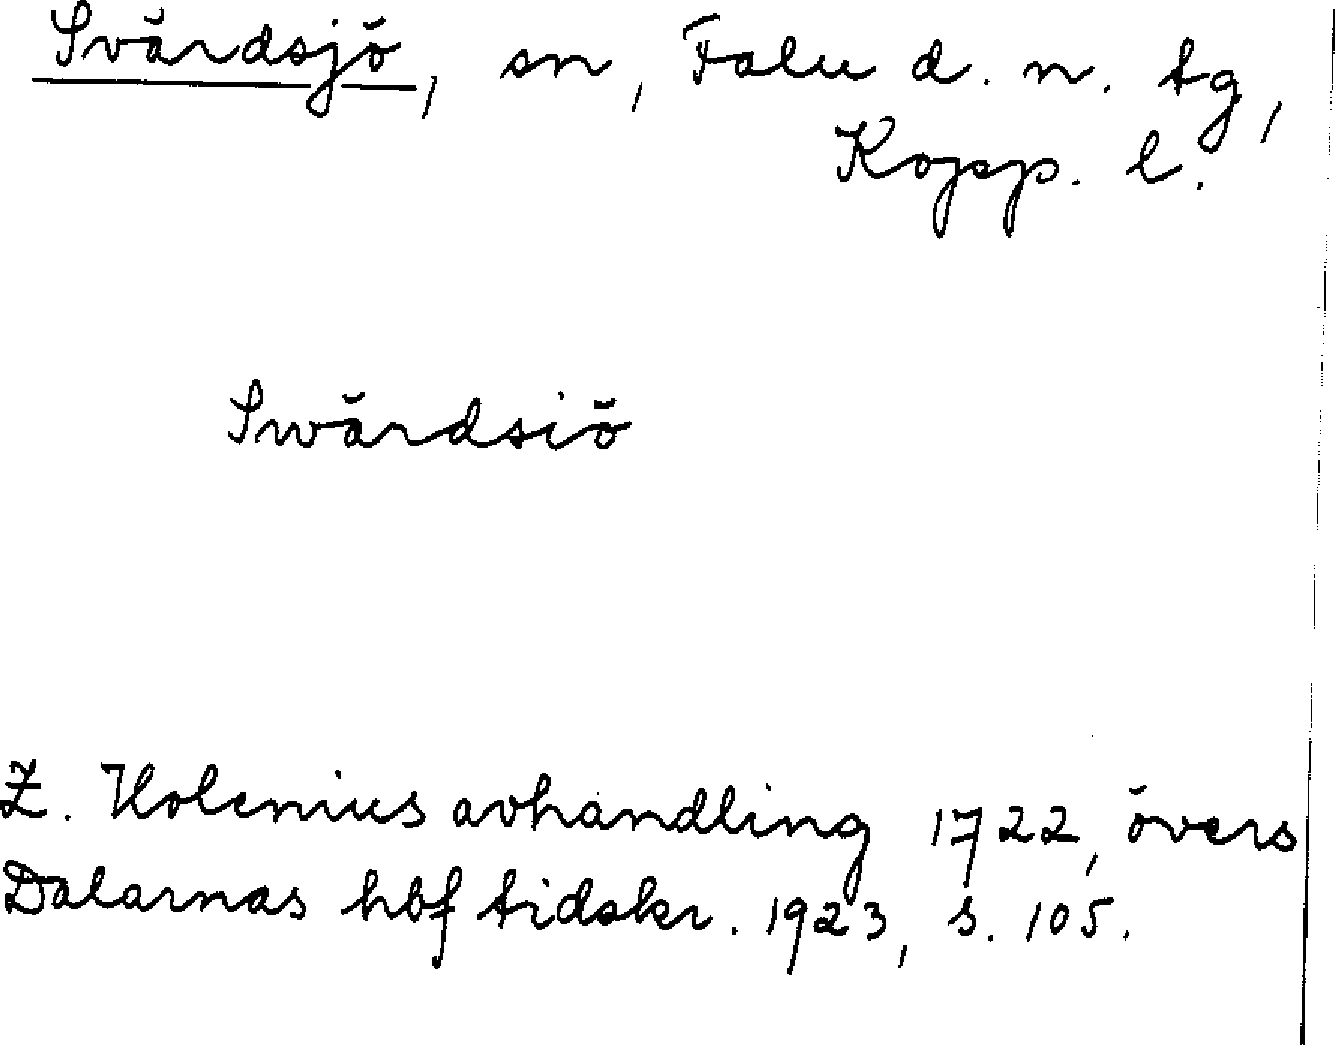 Svärdsjö, sn, Falu d. n. tg,
Kopp. l.
Swärdsiö
Z. Holenius avhandling 1722, övers
Dalarnas hbf tidskr. 1923, s. 105.